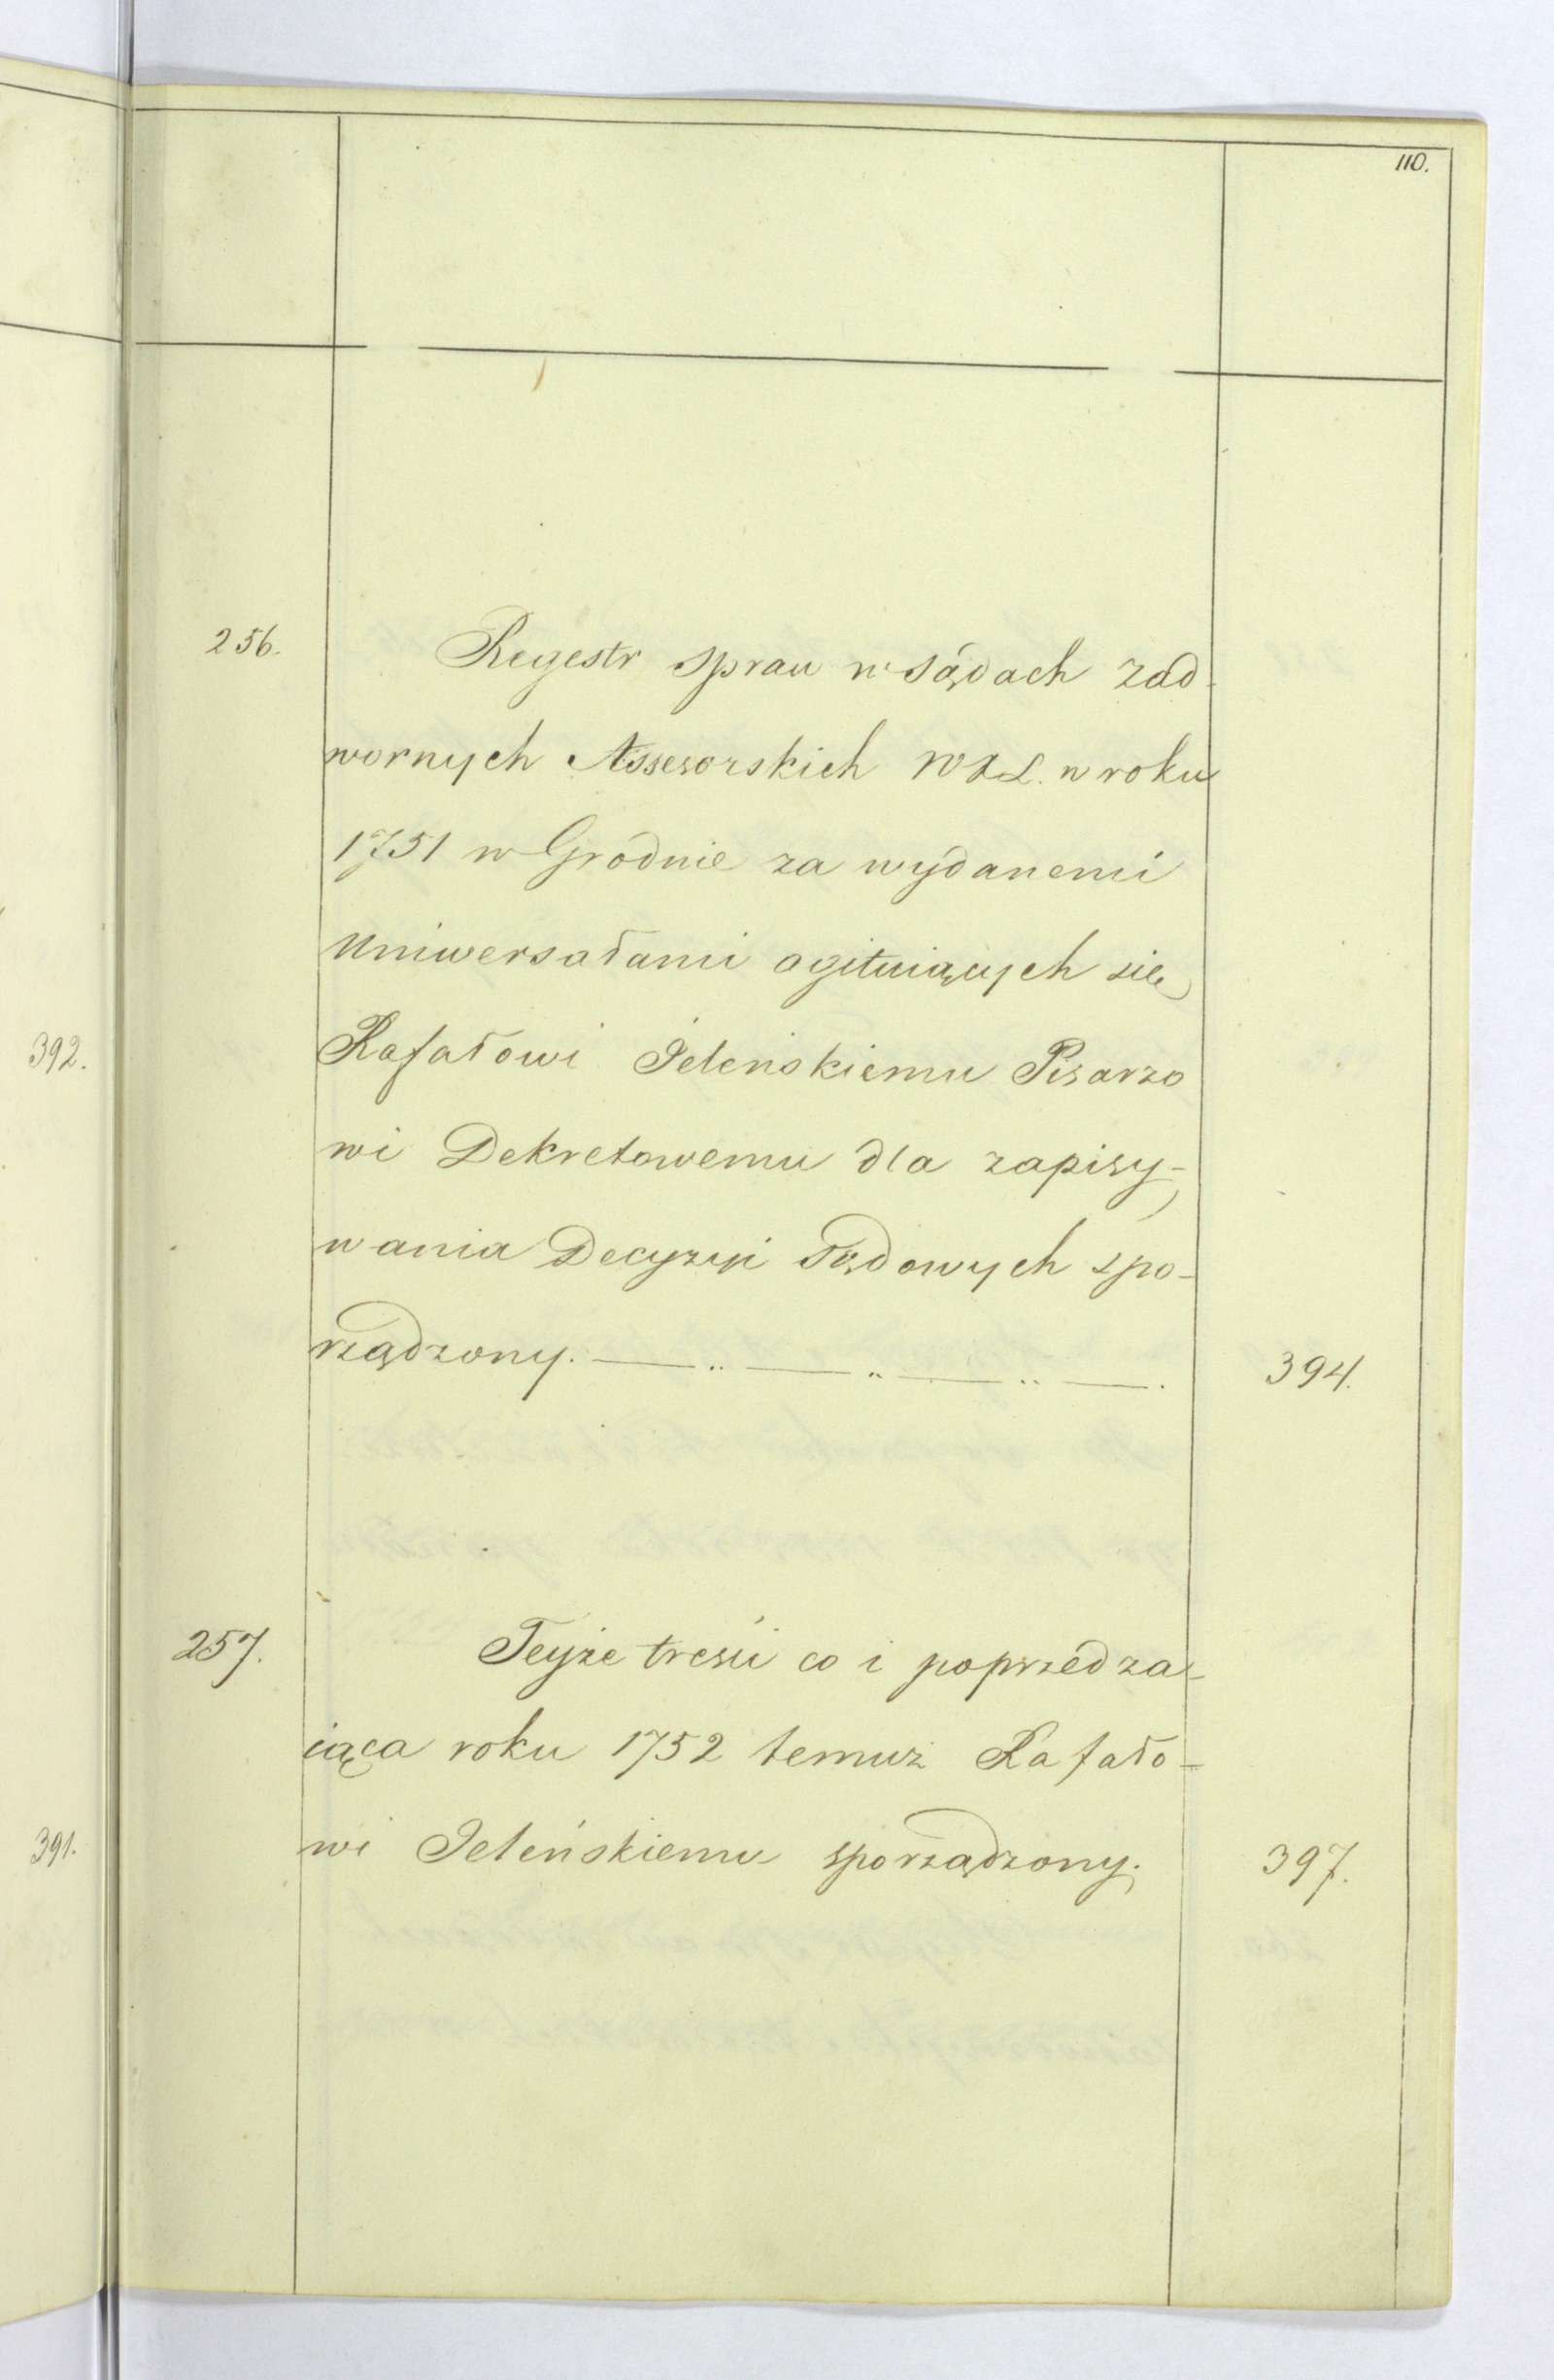 110.
256. Regestr spraw w Sądach zad-
wornych Assesorskich WXL. w roku
1751 w Gródnie za wydanemi
Uniwersałami agituiących się
392.
Rafałowi Jeleńskiemu Pisarzo
wi Dekretowemu dla zapisy-
wania Decyzyi Sądowych spo-
rządzony. — .. — .. — .. — . 394.
257. Teyże treści co i poprzedza-
iąca roku 1752 temuż Rafało-
391.
wi Jeleńskiemu sporządzony. 397.